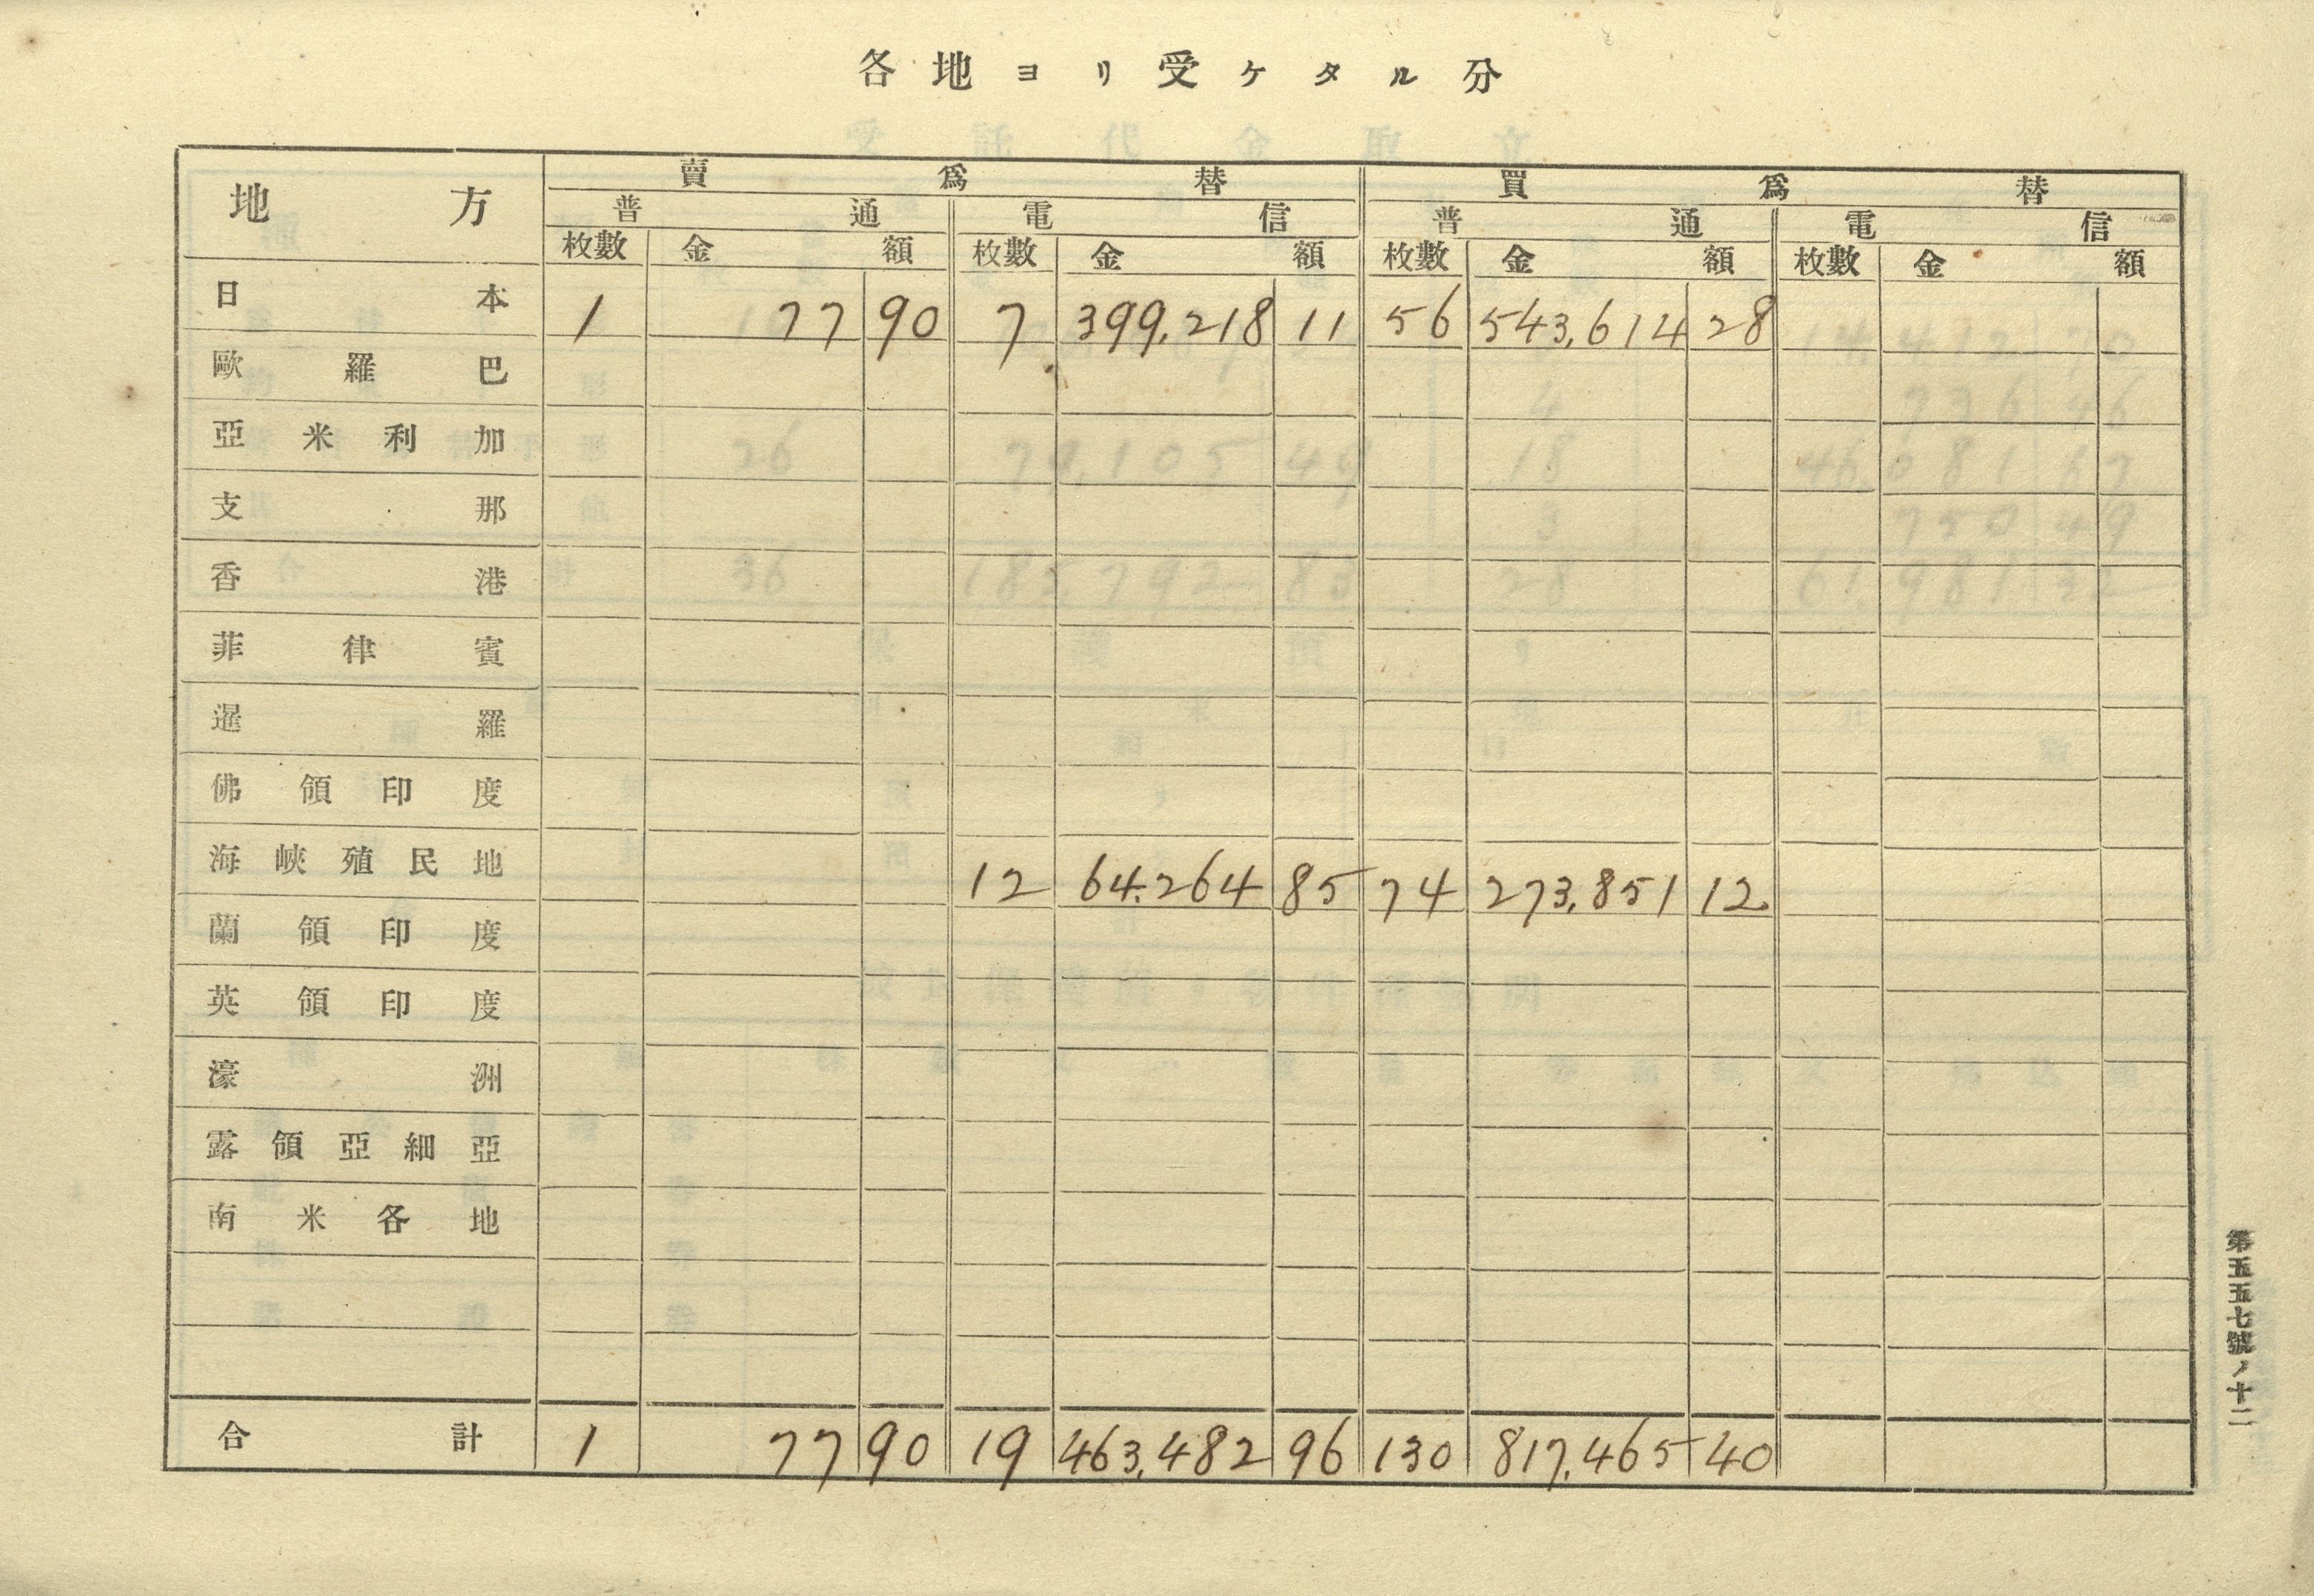 各地ヨリ受ケタル分
地方 賣爲替 買爲替
普通 電信 普通 電信
枚數 金額 枚數 金額 枚數 金額 枚數 金額
日本 1 77 90 7 399,218 11 56 543,614 28
歐羅巴
亞米利加
支那
香港
菲律賓
暹羅
佛領印度
海峽殖民地 12 64,264 85 74 273,851 12
蘭領印度
英領印度
濠洲
露領亞細亞
南米各地
合計 1 77 90 19 463,482 96 130 817,465 40
第五五七號ノ十二